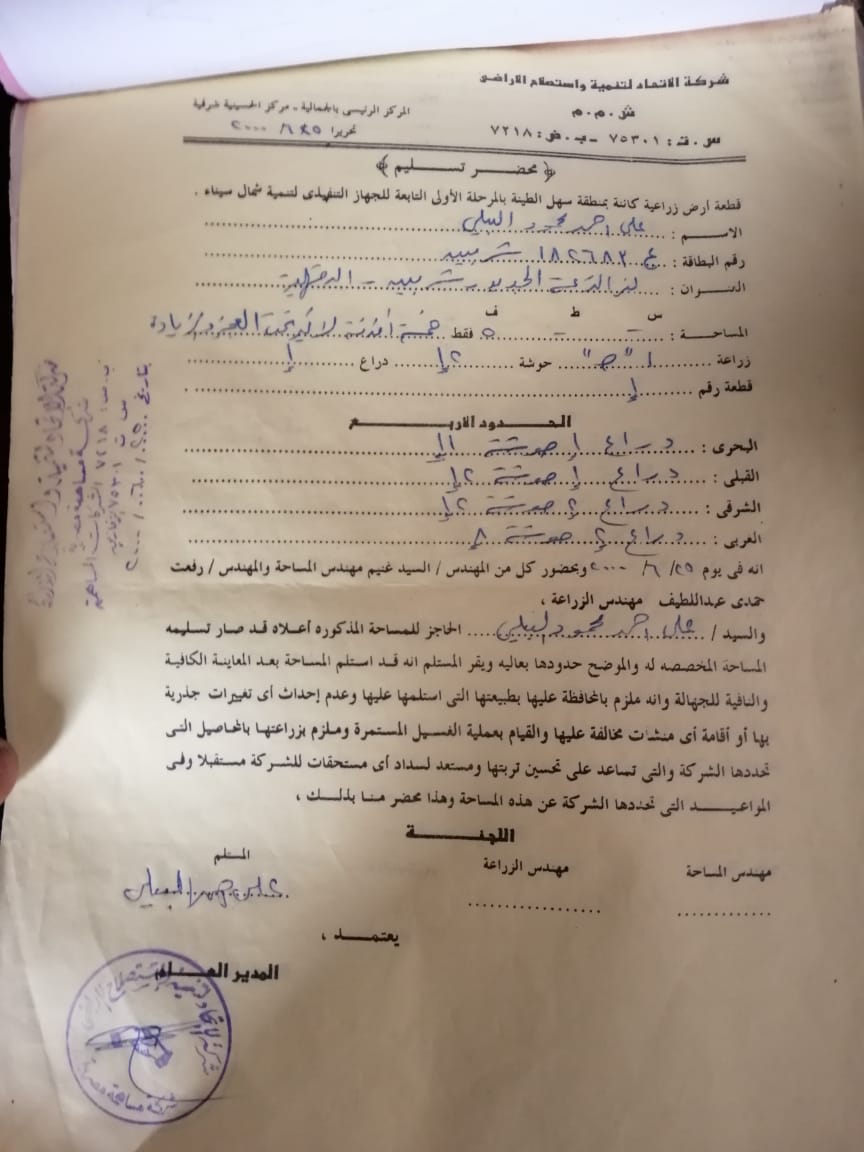 شركة الاتحاد لتنمية واستصلاح الاراضى
ش.م.م
س.ت: ٧٥٣٠١ - ب.ض: ٧٢١٨
المركز الرئيسى بالجمالية - مركز الحسينية شرقية
تحريرا ٢٥/٦/٢٠٠٠
﴿ محضر تسليم ﴾
قطعة أرض زراعية كائنة بمنطقة سهل الطينة بالمرحلة الأولى التابعة للجهاز التنفيذى لتنمية شمال سيناء .
الاسم : على احمد محمود البيلى
رقم البطاقة : ع ١٨٢٦٨٣ شربين
العنوان : الترعة الجديدة - شربين - الدقهلية
س ط ف
المساحة : - - ٥ فقط خمسة أفدنة لا غير تحت العجز والزيادة
زراعة ١ "ج" حوشة ١٢ دراع ١
قطعة رقم ١
الحدود الاربع
البحرى : دراع ١ حوشة ١١
القبلى : دراع ١ حوشة ١٢
الشرقى : دراع ٢ حوشة ١٢
الغربى : دراع ٢ حوشة ٨
انه فى يوم ٢٥/٦/٢٠٠٠ وبحضور كل من المهندس / السيد غنيم مهندس المساحة والمهندس / رفعت
حمدى عبداللطيف مهندس الزراعة ،
والسيد / على احمد محمود البيلى الحاجز للمساحة المذكوره أعلاه قد صار تسليمه
المساحة المخصصه له والموضح حدودها بعاليه ويقر المستلم انه قد استلم المساحة بعد المعاينة الكافية
والنافية للجهالة وانه ملزم بالمحافظة عليها بطبيعتها التى استلمها عليها وعدم إحداث أى تغييرات جذرية
بها أو أقامة أى منشات مخالفة عليها والقيام بعملية الغسيل المستمرة وملزم بزراعتها بالمحاصيل التى
تحددها الشركة والتى تساعد على تحسين تربتها ومستعد لسداد أى مستحقات للشركة مستقبلا وفى
المواعيد التى تحددها الشركة عن هذه المساحة وهذا محضر منا بذلك ،
اللجنة
مهندس المساحة
مهندس الزراعة
المستلم
يعتمد ،
المدير العام
شركة الاتحاد لتنمية واستصلاح الاراضى
شركة مساهمة مصرية
س ت ٧٥٣٠١
ب.ض: ٧٢١٨